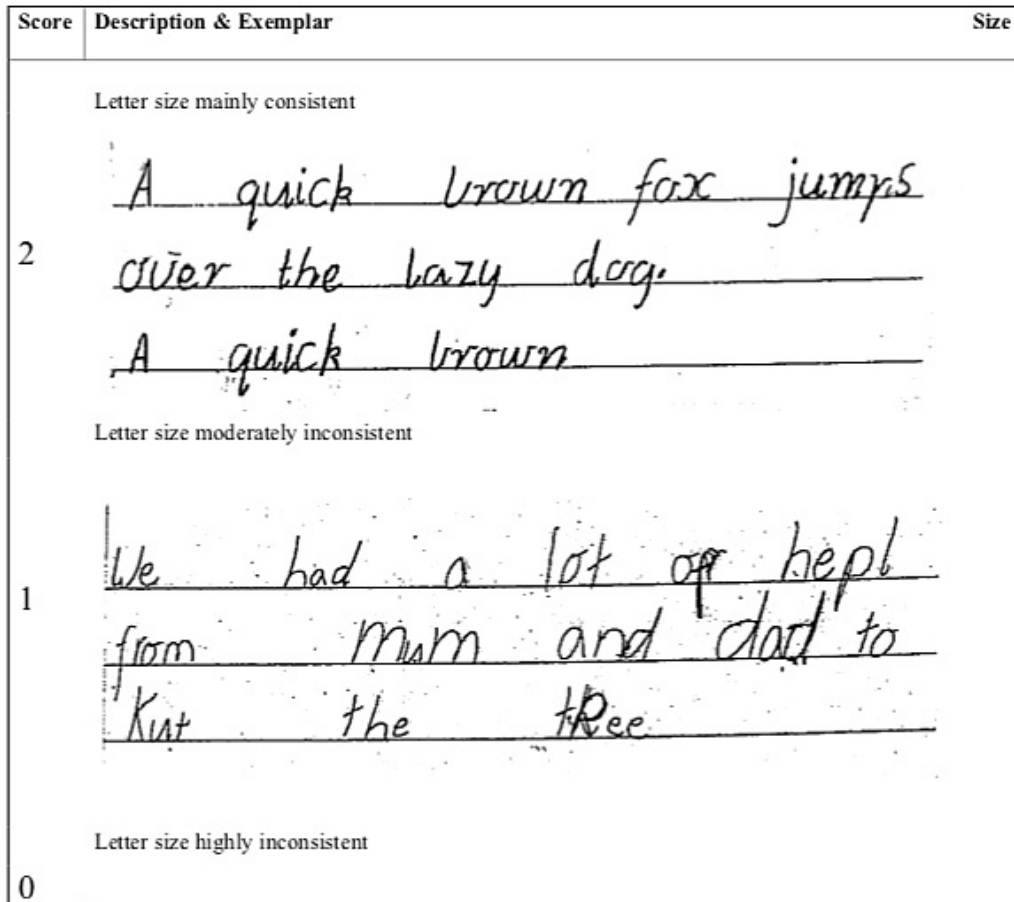 Score Description & Exemplar Size
Letter size mainly consistent
2
A quick brown fox jumps
over the lazy dog.
A quick brown
Letter size moderately inconsistent
1
We had a lot of hepl
from mum and dad to
Kut the tRee
Letter size highly inconsistent
0